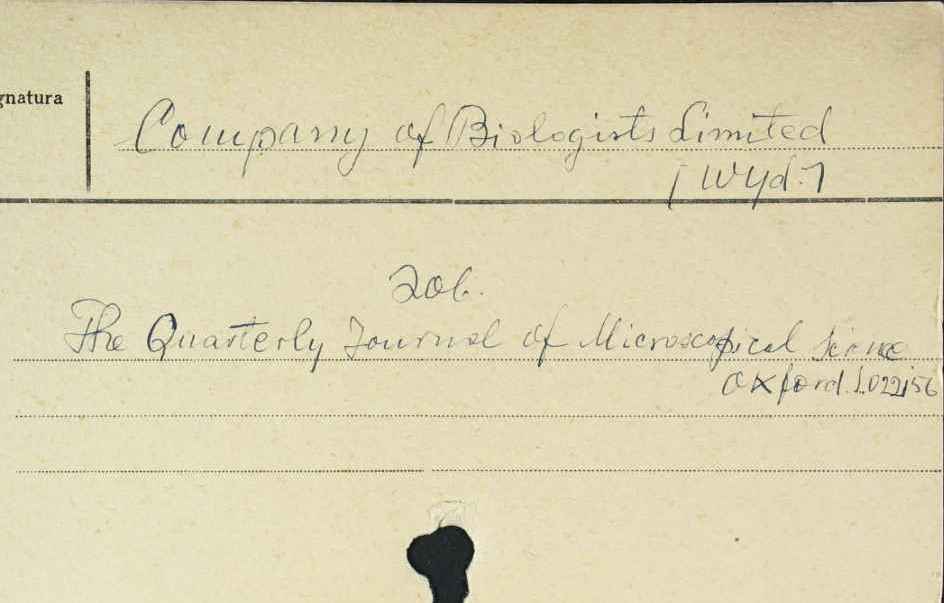 gnatura
Company of Biologists Limited
[Wyd.]
Zob.
The Quarterly Journal of Microscopical Science
Oxford.